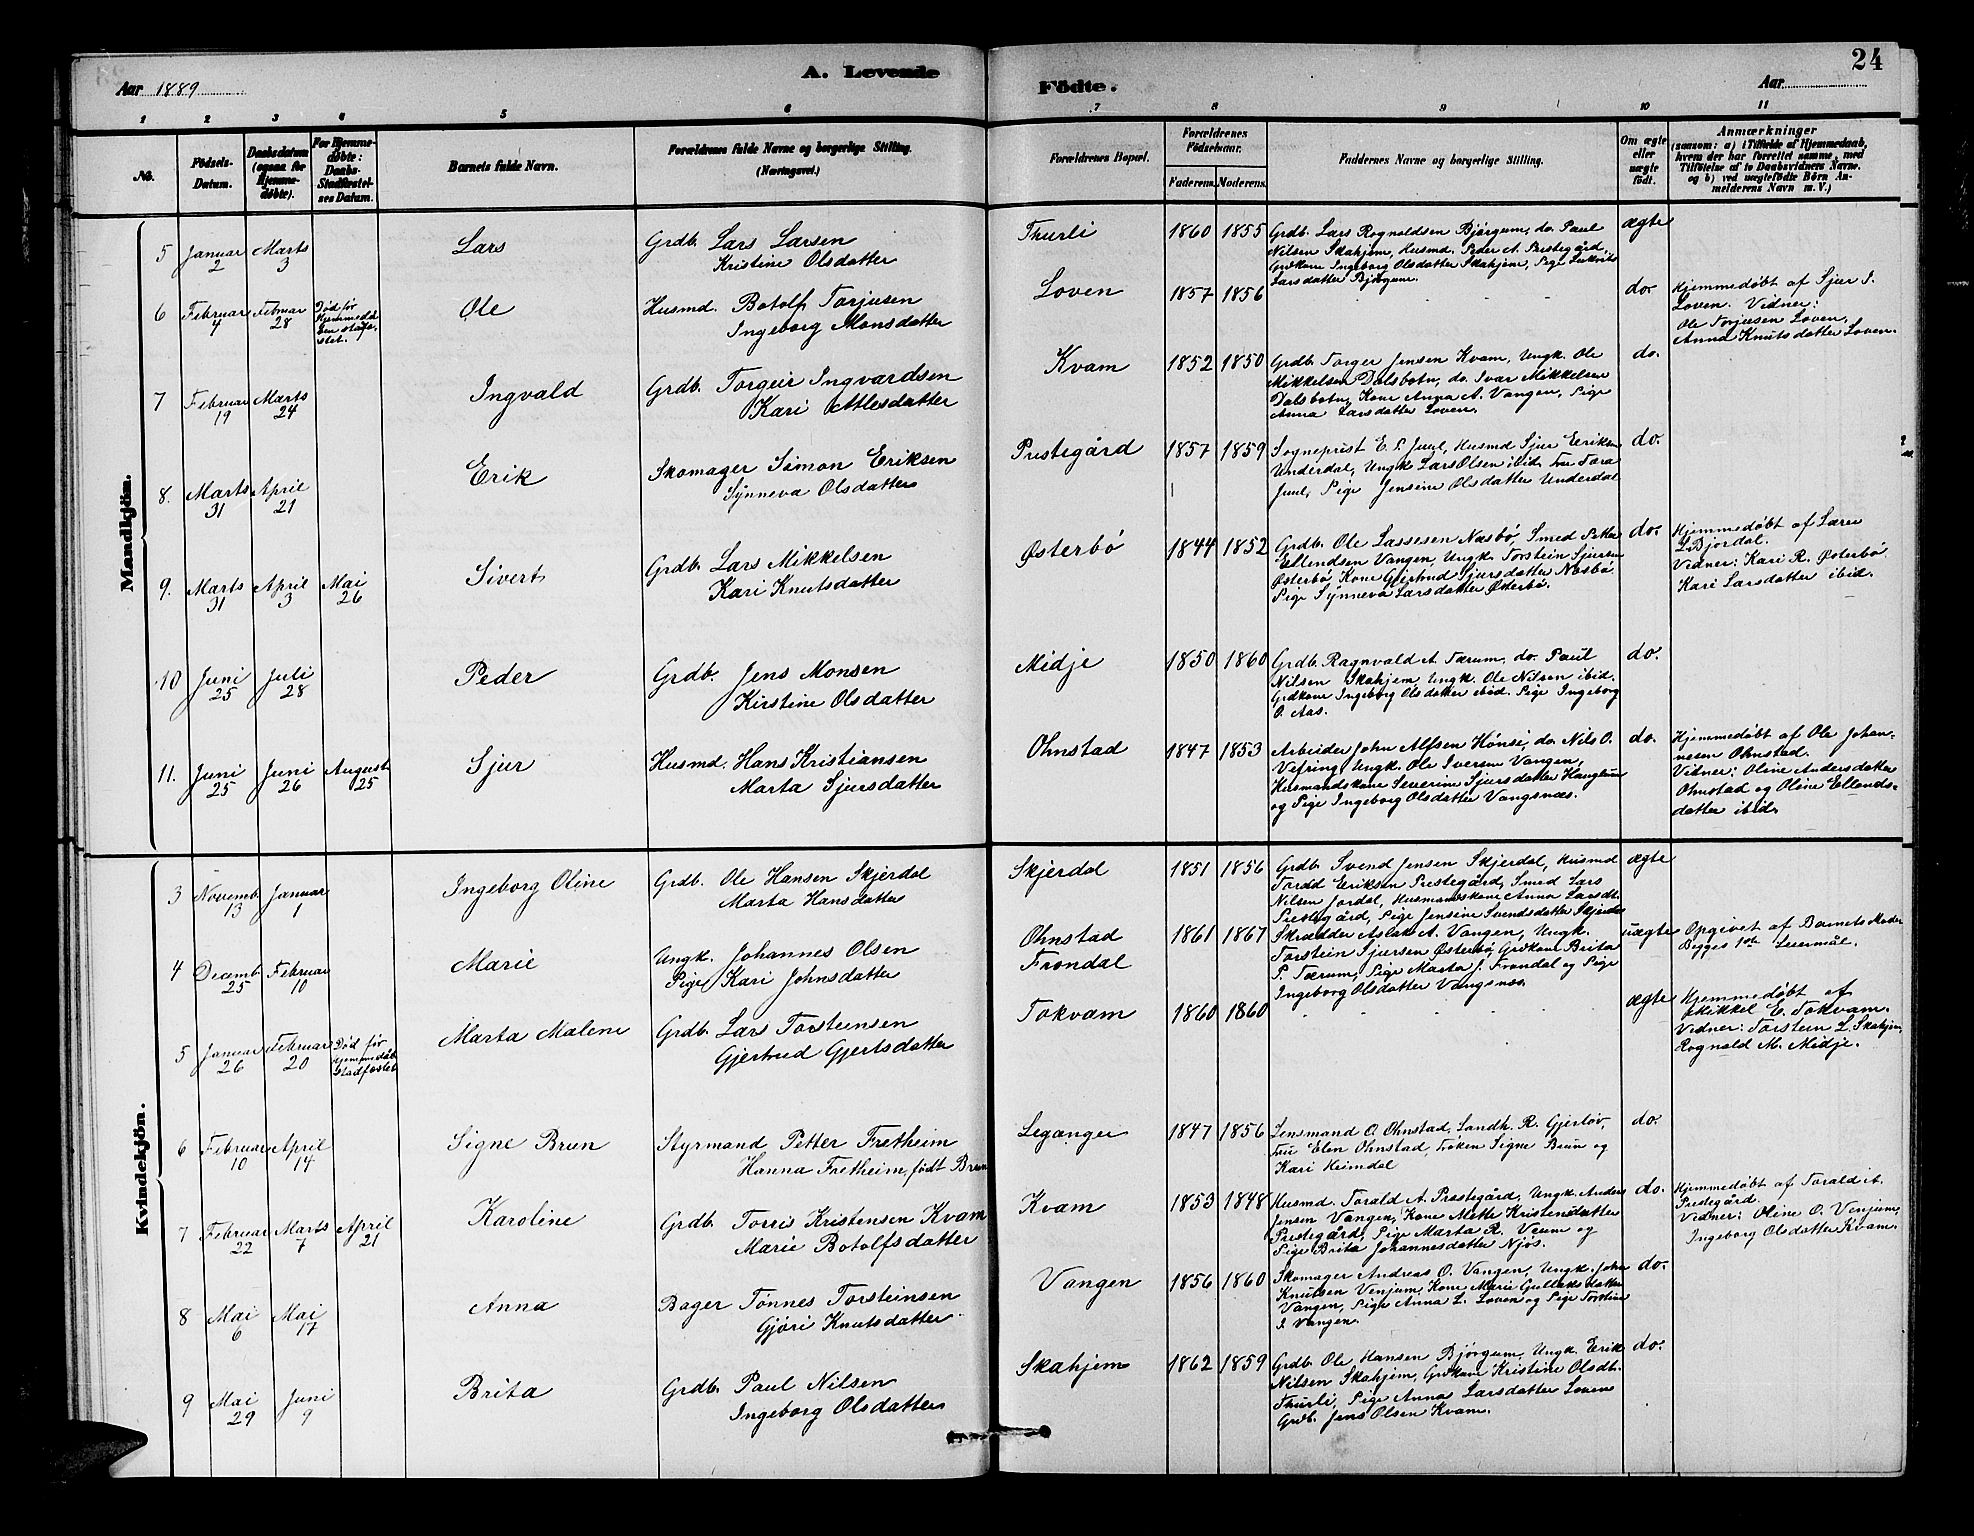 24
A. Levende
Födte.
Aar 1889
Aar
1 2 3 4 5 6 7 8 9 10 11
No.
Födsels-
Datum.
Daabsdatum
(ogsaa for
Hjemme-
döbte).
For Hjemme-
döbte:
Daabs-
Stadfæstel-
ses Datum.
Barnets fulde Navn.
Forældrenes fulde Navne og borgerlige Stilling.
(Næringsvei.)
Forældrenes Bopæl.
Forældrenes
Födselsaar.
Faderens. Moderens.
Faddernes Navne og borgerlige Stilling.
Om ægte
eller
uægte
födt.
Anmærkninger
(saasom: a) i Tilfælde af Hjemmedaab,
hvem der har forrettet samme, med
Tilföielse af to Daabsvidners Navne.
og b) ved uægtefödte Börn An-
melderens Navn m. V.)
Mandkjön.
5 Januar 2 Marts 3 Lars
Grdb. Lars Larsen
Kristine Olsdatter
Thurli 1860 1855
Grdb. Lars Rognaldsen Bjørgum, do. Paul
Nilsen Skahjem, Husmd. Peder A. Prestegård,
Grdkone Ingeborg Olsdatter Skahjem, Pige
Larsdatter Bjørgum.
ægte
6 Februar 4 Februar 28
Død før
Hjemmedå-
ben stadfæ-
stet.
Ole
Husmd. Botolf Torjusen
Ingeborg Monsdatter
Loven 1857 1856 do.
Hjemmedøbt af Sjur I.
Loven. Vidner:
Ole Torjusen Loven,
Anna Knutsdatter Loven.
7 Februar 19 Marts 24 Ingvald
Grdb. Torgeir Ingvardsen
Kari Atlesdatter
Kvam 1852 1850
Grdb. Torger Jensen Kvam, Ungk. Ole
Mikkelsen Dalsbotn, do. Ivar Mikkelsen
Dalsbotn, Kone Anna A. Vangen, Pige
Anna Larsdatter Loven.
do.
8. Marts 31 April 21 Erik
Skomager Simon Eriksen
Synneva Olsdatter
Prestegård 1857 1859
Sogneprest E. P. Juul, Husmd Sjur Eriksen
Underdal, Ungk Lars Olsen ibid, Fru Tora
Juul, Pige Jensine Olsdatter Underdal
do.
9. Marts 31 April 3 Mai 26 Sivert
Grdb. Lars Mikkelsen
Kari Knutsdatter
Østerbø 1844 1852
Grdb. Ole Lassesen Næsbø, Smed Peter
Ellendsen Vangen, Ungk. Torstein Sjursen
Østerbø, Kone Gjertrud Sjursdatter Næsbø
Pige Synneva Larsdatter Østerbø.
do.
Hjemmedøbt af Lærer
L. Bjordal.
Vidner: Kari R. Østerbø
Kari Larsdatter ibid.
10 Juni 25 Juli 28 Peder
Grdb. Jens Monsen
Kirstine Olsdatter
Midje 1850 1860
Grdb. Ragnvald A. Tærum, do. Paul
Nilsen Skahjem, Ungk. Ole Nilsen ibid.
Grdkone Ingeborg Olsdatter ibid. Pige Ingeborg
O. Aas.
do.
11. Juni 25 Juni 26 August 25 Sjur
Husmd. Hans Kristiansen
Marta Sjursdatter
Ohnstad 1847 1853
Arbeider John Alfsen Hønsi, do. Nils O.
Vefring, Ungk. Ole Iversen Vangen,
Husmandskone Severine Sjursdatter Haugtun
og Pige Ingeborg Olsdatter Vangsnæs.
do.
Hjemmedøbt af Ole Johan-
nesen Ohnstad.
Vidner: Oline Andersdatter
Ohnstad og Oline Ellends-
datter ibid.
Kvindekjön.
3 Novemb. 13 Januar 1 Ingeborg Oline
Grdb. Ole Hansen Skjerdal
Marta Hansdatter
Skjerdal 1851 1856
Grdb. Svend Jensen Skjerdal, Husmd
Torald Eriksen Prestegård, Smed Lars
Nilsen Jordal, Husmandskone Anna Larsdt.
Prestegård, Pige Jensine Svendsdatter Skjerdal
ægte
4 Decemb. 25 Februar 10 Marie
Ungk. Johannes Olsen
Pige Kari Johnsdatter
Ohnstad
Frondal
1861 1867
Skrædder Aslak A. Vangen, Ungk.
Torstein Sjursen Østerbø, Grdkone Brita
P. Tærum, Pige Marta J. Frondal og Pige
Ingeborg Olsdatter Vangsnæs
uægte
Opgivet af Barnets Moder
Begges 1ste Leiermål.
5 Januar 26 Februar 20
Død før
Hjemmedåb
stadfæstet
Marta Malene
Grdb. Lars Torsteinsen
Gjertrud Gjertsdatter
Tokvam 1860 1860 ægte
Hjemmedøbt af
Mikkel E. Tokvam.
Vidner: Torstein L. Skahjem,
Rognald M. Midje.
6 Februar 10 April 14 Signe Brun
Styrmand Petter Fretheim
Hanna Fretheim, født Brun
Leganger 1847 1856
Lensmand O. Ohnstad, Landh. R. Gjerløv,
Fru Elen Ohnstad, Frøken Signe Brun og
Kari Heimdal
do.
7 Februar 22 Marts 7 April 21 Karoline
Grdb. Torris Kristensen Kvam
Marie Botolfsdatter
Kvam 1853 1848
Husmd. Torald A. Prestegård, Ungk. Anders
Jensen Vangen, Kone Mette Kristensdatter
Prestegård, Pige Marta R. Veum og
Pige Brita Johannesdatter Njøs.
do.
Hjemmedøbt af Torald A.
Prestegård.
Vidner: Oline O. Venjum,
Ingeborg Olsdatter Kvam.
8 Mai 6 Mai 17 Anna
Bager Tønnes Torsteinsen
Gjøri Knutsdatter
Vangen 1856 1860
Skomager Andreas O. Vangen, Ungk. John
Knutsen Venjum, Kone Marie Gullaksdatter
Vangen, Pige Anna L. Loven og Pige Torstine
I. Vangen.
do.
9 Mai 29 Juni 9 Brita
Grdb. Paul Nilsen
Ingeborg Olsdatter
Skahjem 1862 1859
Grdb. Ole Hansen Bjørgum, Ungk. Erik
Nilsen Skahjem, Grdkone Kristine Olsdt.
Thurli, Pige Anna Larsdatter Loven
Grdb. Jens Olsen Kvam.
do.